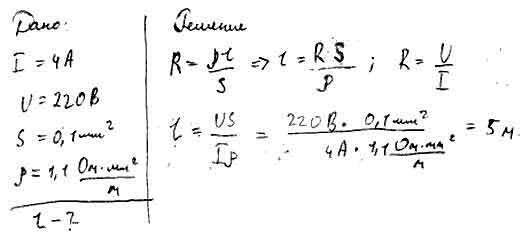 Дано:
I = 4А
U = 220В
S = 0,1мм²
ρ = 1,1 Ом·мм²/м
l - ?
Решение
R = ρl/S => l = R S/ρ ; R = U/I
l = US/Iρ = 220В · 0,1мм² / 4А · 1,1 Ом·мм²/м = 5м.